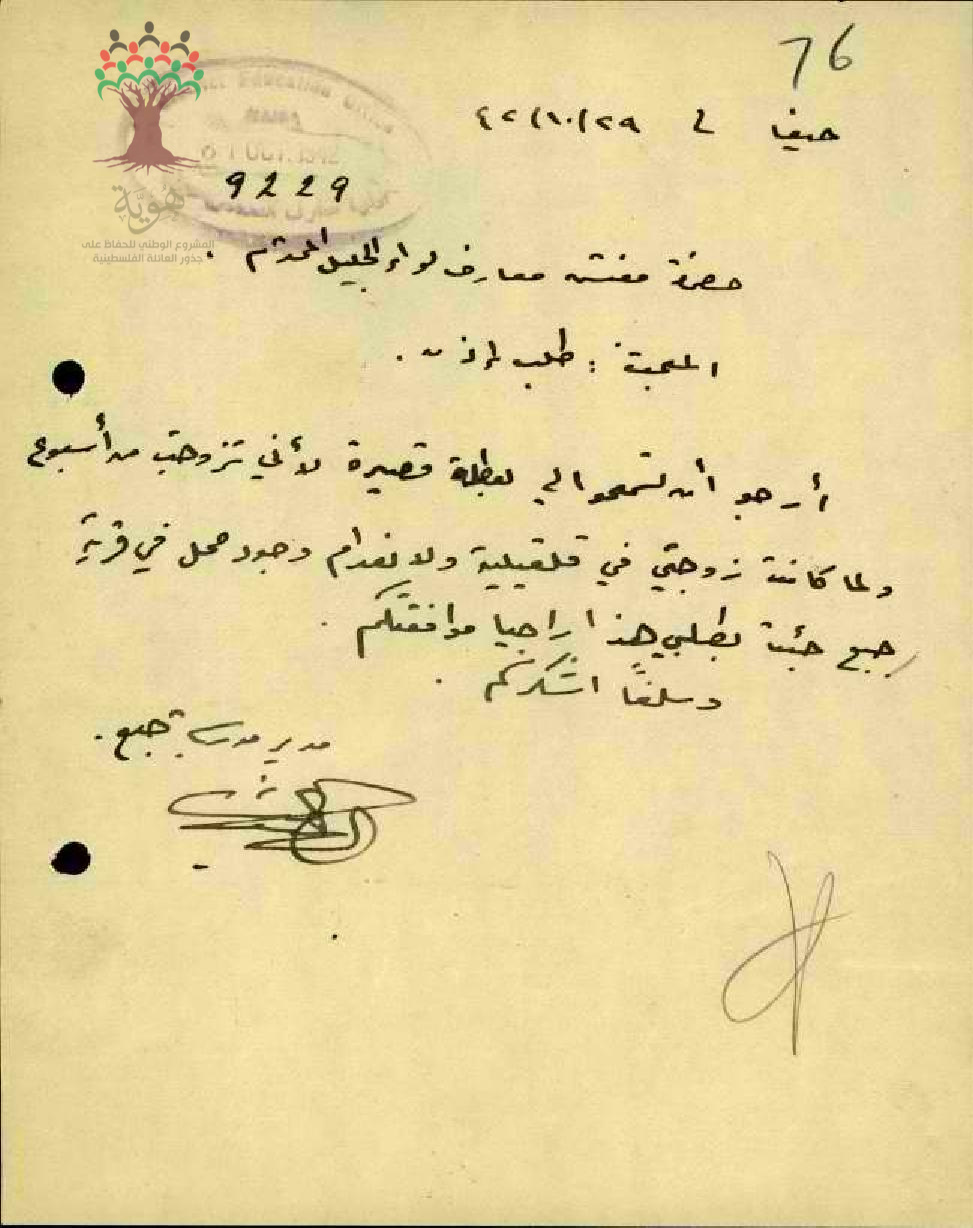 76
حيفا في ٢٩/١٠/٤٢
District Education Office
HAIFA
31 OCT. 1942
9229
هوية
المشروع الوطني للحفاظ على
جذور العائلة الفلسطينية
حضرة مفتش معارف لواء الجليل المحترم .
التحية : طلب إذن .
أرجو أن تسمحوا لي بعطلة قصيرة لأني تزوجت من أسبوع
ولما كانت زوجتي في قلقيلية ولانعدام وجود محل في قرية
جبع جئت بطلبي هذا راجيا موافقتكم .
وسلفاً اشكركم .
مدير مدرسة جبع .